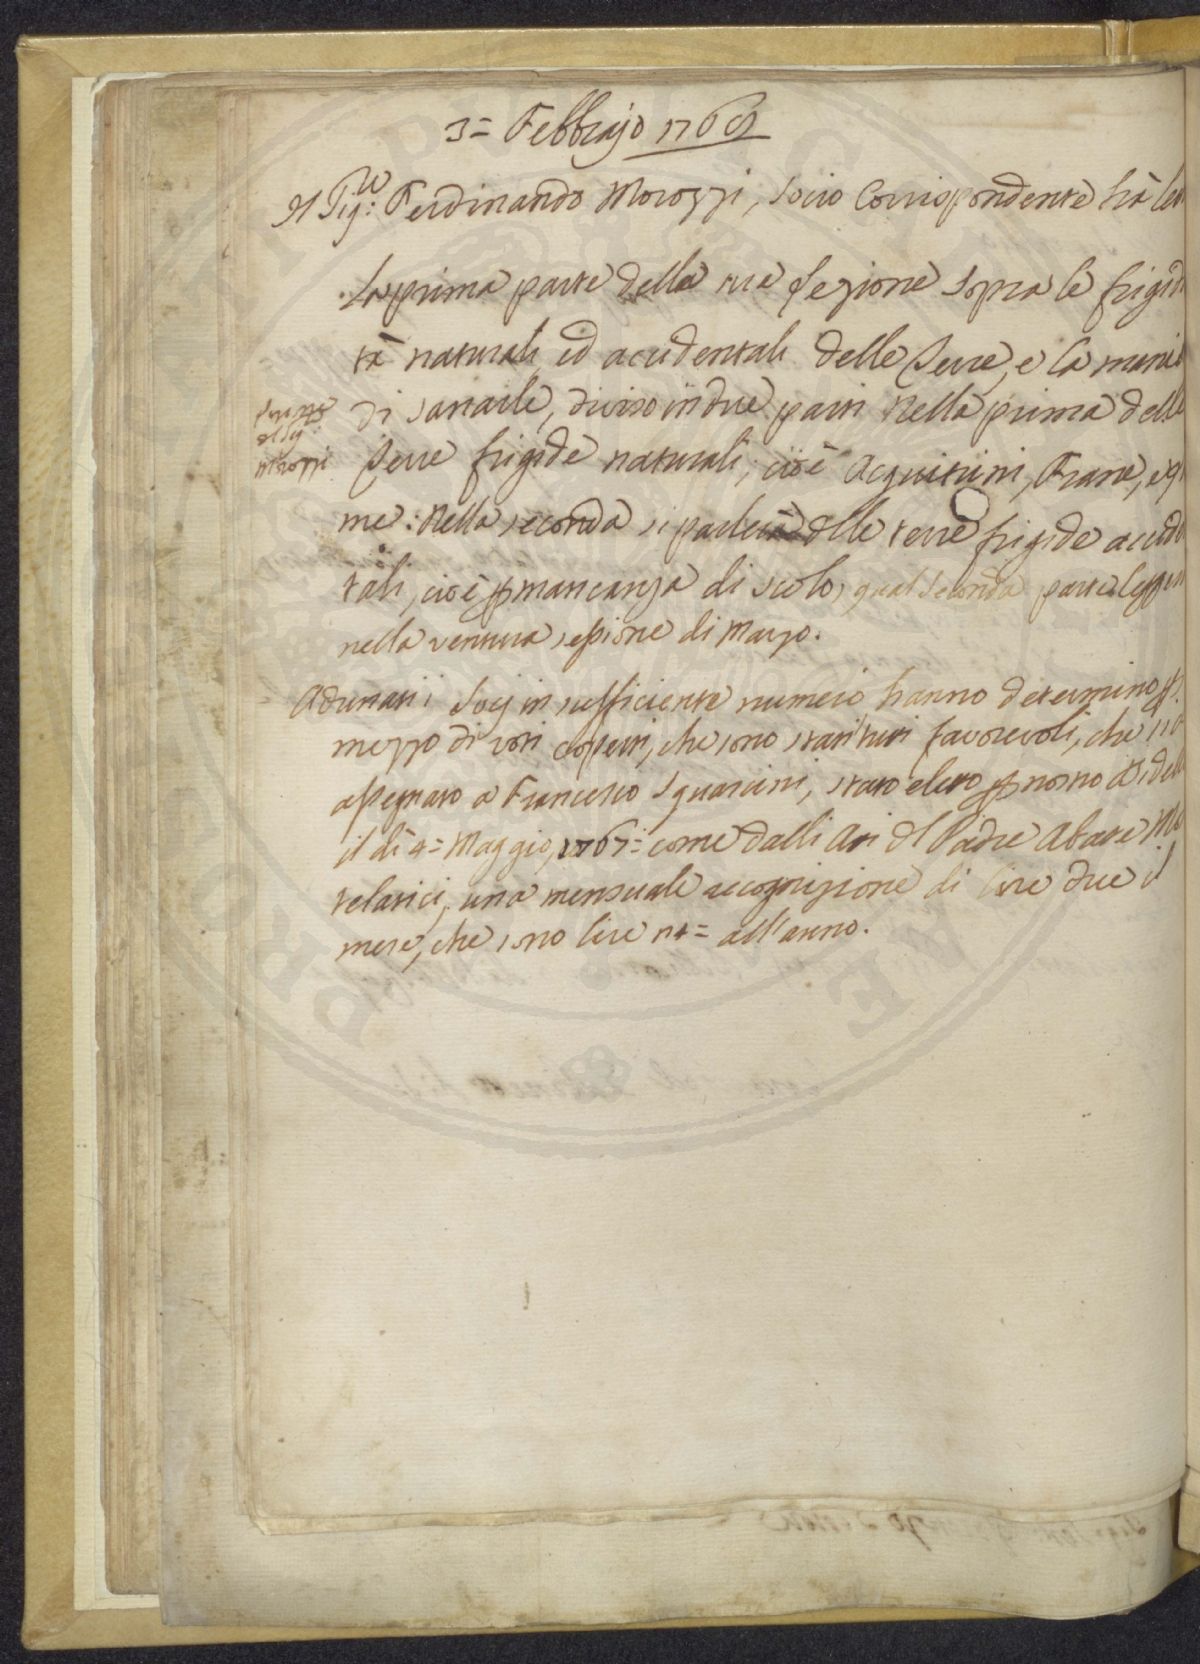 3= Febbrajo 1768
Il Sig:re Ferdinando Morozzi, Socio Corrispondente hà let
La prima parte della sua Lezione sopra le frigidi
tà naturali, ed accidentali delle Terre, e la manie
di sanarle, diviso in due parti Nella prima delle
Terre frigide naturali, cioè Acquitrini, Frane, e
me: Nella seconda si parlerà delle terre frigide acciden
tali, cioè p mancanza di scolo, qual seconda parte legger
nella ventura sessione di Marzo.
del Sig:
Morozzi
Adunati i Socj in sufficiente numero hanno determino p
mezzo di voti coperti, che sono stati tutti favorevoli, che sia
assegnato a Francesco Squarcini, stato eletto p nostro Bidello
il dì 4= Maggio 1767= come dalli Atti del Padre Abate M
telatici, una mensuale recognizione di lire due il
mese, che sono lire 24= all'anno.